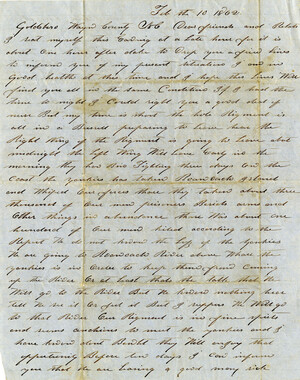 Feb the 10 1862
Goldsboro Wayne County NC Dear friends and Relat
I seat myself this Eveing at a late hour for it is
about one hour after dark to Drop you a few lines
to inform you of my present situation I am in
Good health at this time and I hope this lines will
find you all in the same Condition If I had the
time to night I Could right you a good deal of
news But my time is short the hole Regiment is
all in a Bussel prepareing to leave here the
Right Wing of the Regiment is going to leave about
midnight the left Wing Will leave Early in the
morning they has bin Fighting three days on the
Coast the yankies has taken Roanoack Island
and Whiped Our forces there they taken about three
thousand of Our men prisoners Besids arms and
Other things in abundance there Was about one
hundred of Our men kiled according to the
Report We do not know the loss of the yankies
We are going to Roanoack River above Where the
yankies is in Order to keep them from Coming
up the River Or at least that the talk that We
Will go to the River But We do not know nothing here
till We are Orderd of But I suppose We Will go
to that River Our Regment is in fine spirits
and seems anctious to meet the yankies and I
have know doubt Beutt they Will enjoy that
oppertunity Before ten days I Can inform
you that We are having a good many sick